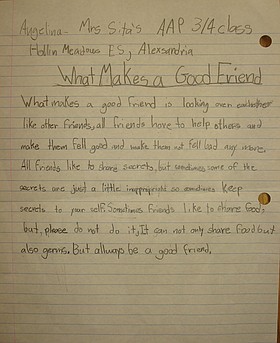 Angelina- Mrs Sita's AAP 3/4 class
Hollin Meadows ES, Alexsandria
What Makes a Good Friend
What makes a good friend is looking over eachother
like other friends, all friends have to help others and
make them fell good and make them not fell bad any more.
All friends like to share secrets, but sometimes some of the
secrets are just a little inappropright so sometimes keep
secrets to your self. Sometimes friends like to share food,
but, please do not do it, It can not only share food but
also germs. But allways be a good friend.